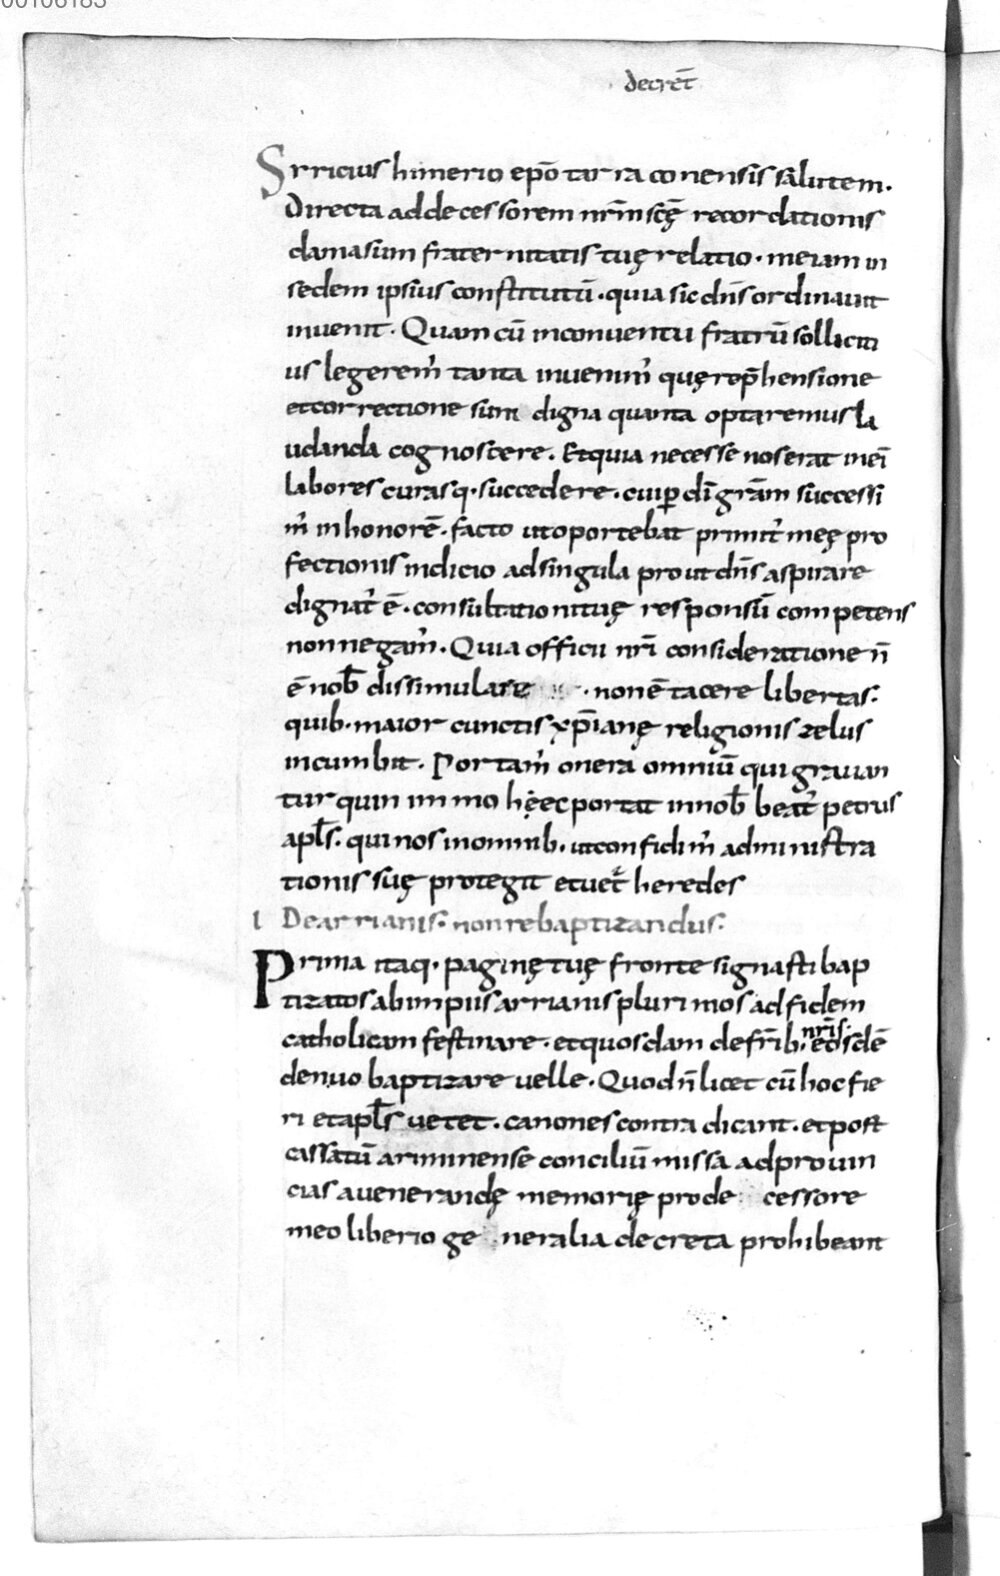 00106183
decret̄
Siricius himerio ep̄o tarraconensis salutem.
Directa ad decessorem nr̄m scę̄ recordationis
damasum fraternitatis tuę relatio. me iam in
sedem ipsius constitutū. quia sic dn̄s ordinauit
inuenit. Quam cū in conuentu fratrū solliciti
us legerem̓ tanta inuenim̓ quę rep̄hensione
et correctione sunt digna quanta optaremus la
udanda cognoscere. Et quia necesse nos erat in ei
labores curasq. succedere. cui ꝑ dī grām successi
m̓ in honorē. facto ut oportebat primit̓ meę pro
fectionis indicio ad singula prout dn̄s aspirare
dignat̓ ē. consultationi tuę responsū competens
non negam̓. Quia officii nr̄i consideratione n̄
ē nob̄ dissimulare . non ē tacere libertas.
quib. maior cunctis xp̄ianę religionis zelus
incumbit. Portam̓ onera omniū qui grauan
tur quin immo hęec portat in nob̄ beat̓ petrus
apl̄s. qui nos in omnib. ut confidim̓ administra
tionis suę protegit et uet̓ heredes
I De arrianis. non rebaptizandus.
Prima itaq. paginę tuę fronte signasti bap
tizatos ab impiis arrianis plurimos ad fidem
catholicam festinare. et quosdam de fr̄ib. nr̄is. eosdē
denuo baptizare uelle. Quod n̄ licet cū hoc fie
ri et apl̄s uetet. canones contradicant. et post
cassatū ariminense conciliū missa ad prouin
cias a uenerandę memorię prode cessore
meo liberio ge neralia decreta prohibeant